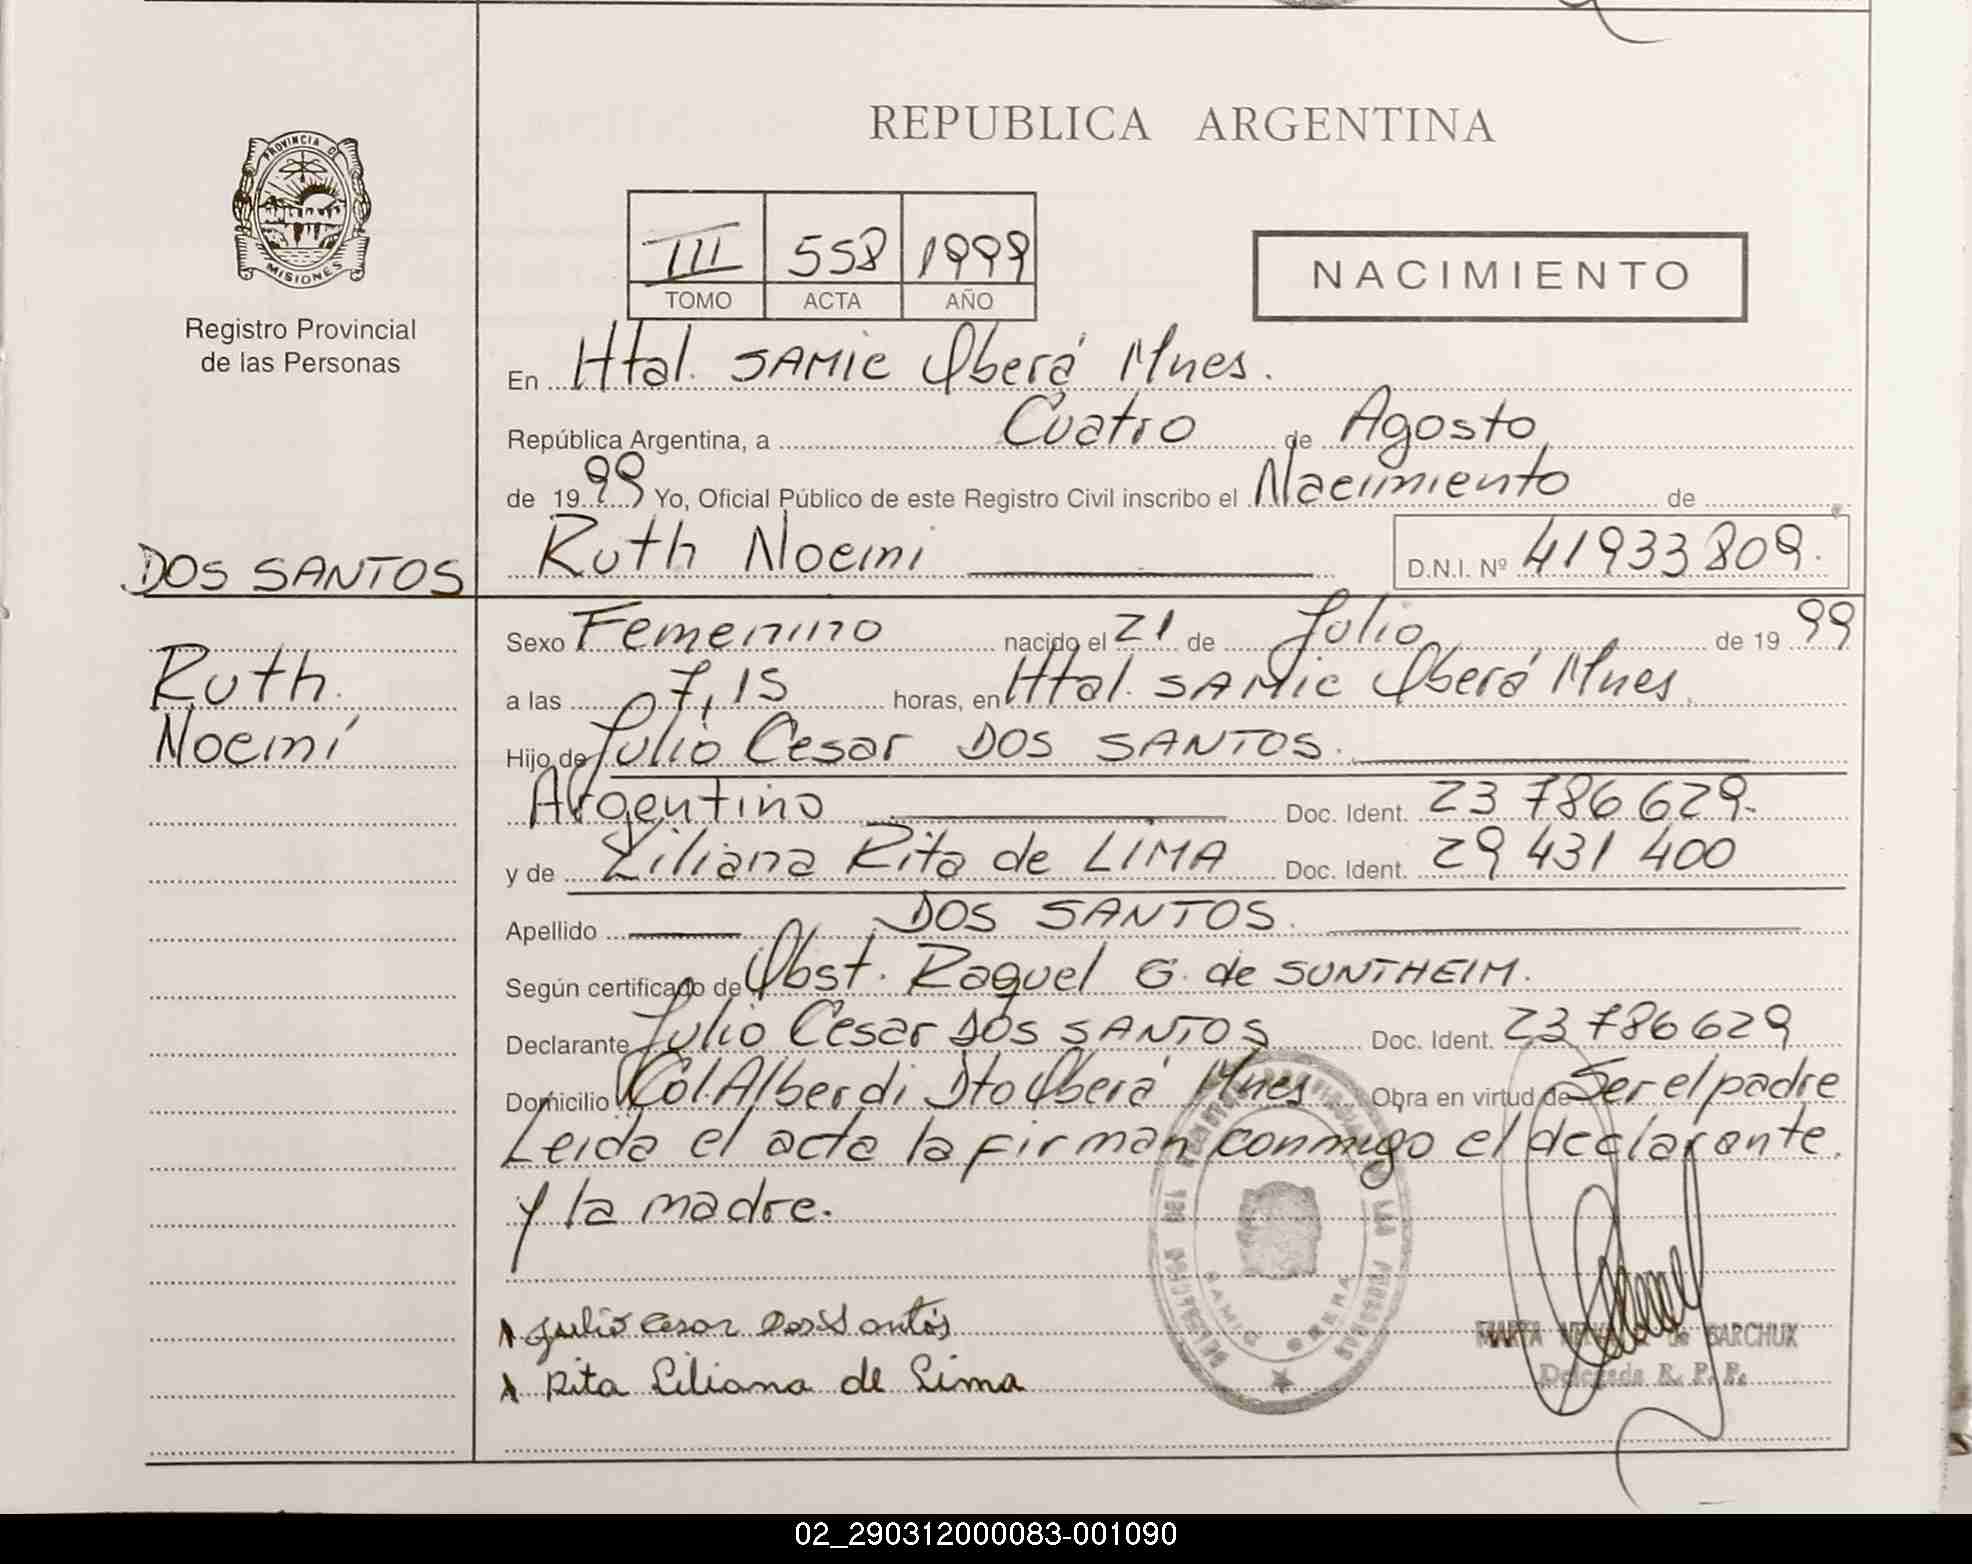 REPUBLICA ARGENTINA
PROVINCIA DE
MISIONES
Registro Provincial
de las Personas
III 558 1999
TOMO ACTA AÑO
NACIMIENTO
En Htal. SAMIC Oberá Mnes.
República Argentina, a Cuatro de Agosto
de 1999 Yo, Oficial Público de este Registro Civil inscribo el Nacimiento de
DOS SANTOS
Ruth Noemi D.N.I. Nº 41933809.
Ruth
Noemí
Sexo Femenino nacido el 21 de Julio de 1999
a las 7,15 horas, en Htal. SAMIC Oberá Mnes.
Hijo de Julio Cesar DOS SANTOS.
Argentino Doc. Ident. 23 786 629.
y de Liliana Rita de LIMA Doc. Ident. 29 431 400
Apellido DOS SANTOS.
Según certificado de Obst. Raquel G. de SUNTHEIM.
Declarante Julio Cesar DOS SANTOS Doc. Ident. 23 786 629
Domicilio Col. Alberdi Dto Oberá Mnes Obra en virtud de Ser el padre
Leida el acta la firman conmigo el declarante.
y la madre.
Julio Cesar Dos Santos
Rita Liliana de Lima
MARTA de SARCHUK
Delegada R. P. P.
02_290312000083-001090